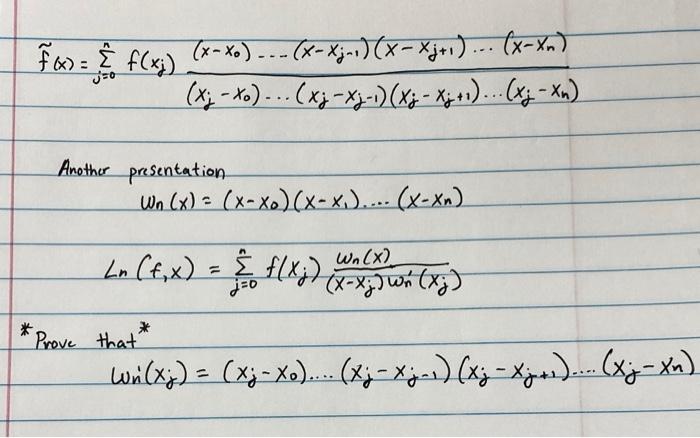 f̃(x) = Σ_{j=0}^{n} f(xj) (x-x0)....(x-xj-1)(x-xj+1)...(x-xn) / (xj-x0)...(xj-xj-1)(xj-xj+1)...(xj-xn)
Another presentation
wn(x) = (x-x0)(x-x1)....(x-xn)
Ln(f,x) = Σ_{j=0}^{n} f(xj) wn(x) / (x-xj)wn'(xj)
*Prove that*
wn'(xj) = (xj-x0)....(xj-xj-1)(xj-xj+1)....(xj-xn)